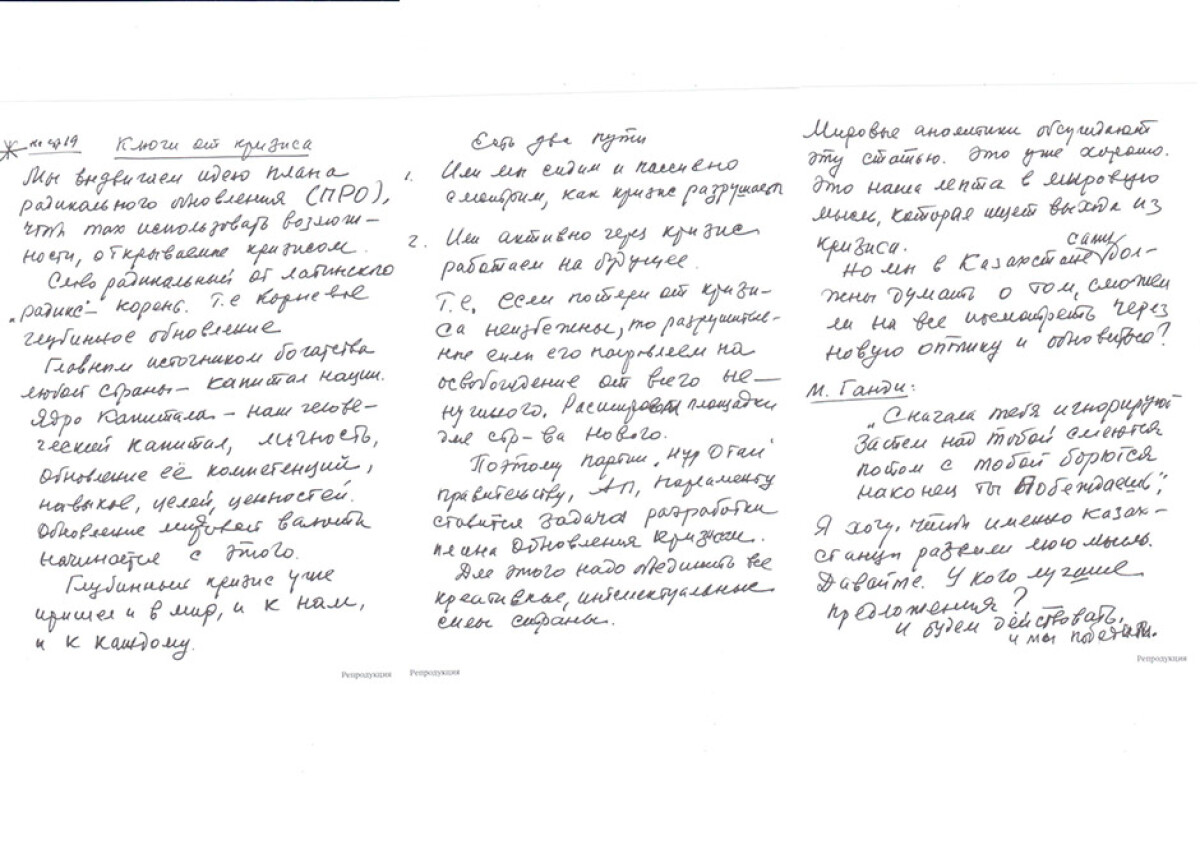 на стр 19
Ключи от кризиса
Мы выдвигаем идею плана
радикального обновления (ПРО),
чтоб max использовать возмож-
ности, открываемые кризисом.
Слово радикальный от латинского
„радикс" – корень. Т.е корневое
глубинное обновление
Главным источником богатства
любой страны – капитал нации.
Ядро капитала – наш челове-
ческий капитал, личность,
обновление её компетенций,
навыков, целей, ценностей.
Обновление мировой валюты
начинается с этого.
Глубинный кризис уже
пришел и в мир, и к нам,
и к каждому.
Репродукция
Есть два пути
1. Или мы сидим и пассивно
смотрим, как кризис разрушает
2. Или активно через кризис
работаем на будущее.
Т.е. если потери от кризи-
са неизбежны, то разрушитель-
ные силы его направляем на
освобождение от всего не-
нужного. Расширяем площадки
для стр-ва нового.
Поэтому партии „Нур Отан"
правительству, АП, Парламенту
ставится задача разработки
плана обновления кризисом.
Для этого надо объединить все
креативные, интелектуальные
силы страны.
Репродукция
Мировые аналитики обсуждают
эту статью. Это уже хорошо.
Это наша лепта в мировую
мысль, которая ищет выхода из
кризиса.
Но мы в Казахстане сами дол-
жны думать о том, сможем
ли на все посмотреть через
новую оптику и обновиться?
М. Ганди:
„Сначала тебя игнорируют
Затем над тобой смеются
потом с тобой борются
наконец ты побеждаешь",
Я хочу, чтоб именно казах-
станцы развили мою мысль.
Давайте. У кого лучшие
предложения?
И будем действовать,
и мы победим.
Репродукция